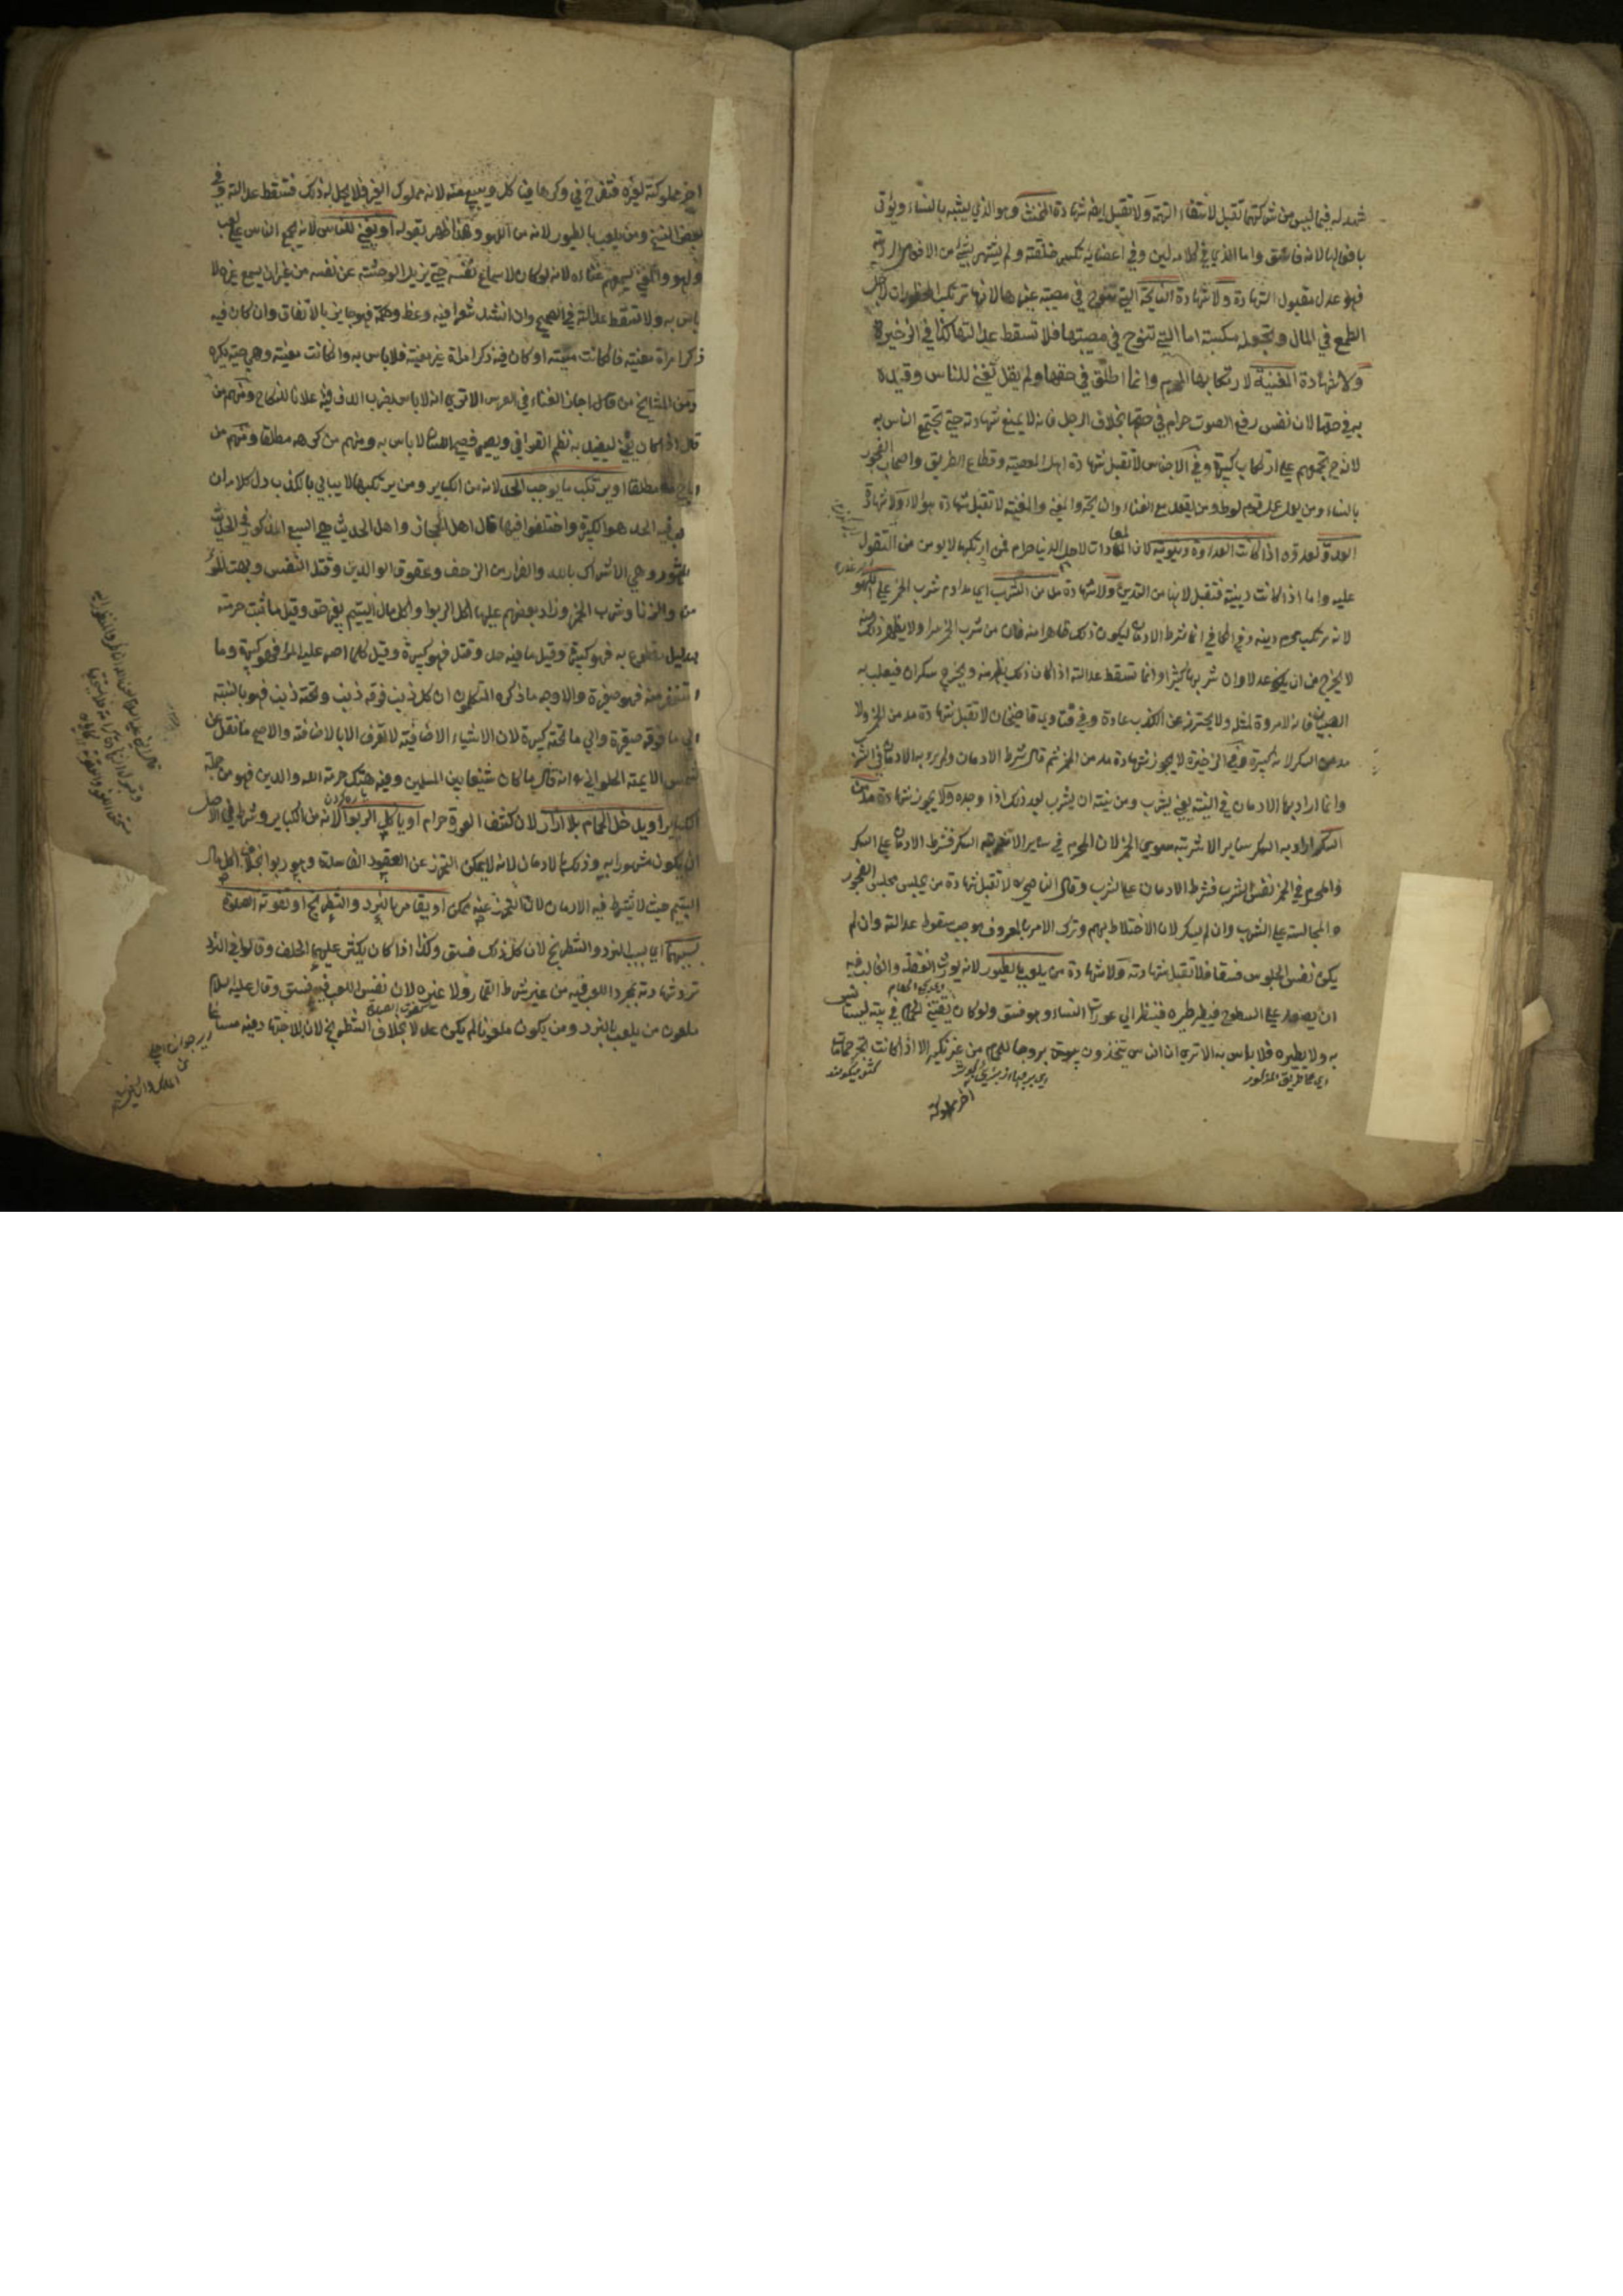 شهد له فيما ليس من شركتهما تقبل لانتفاء التهمة ولا تقبل ايضا شهادة المخنث وهو الذي يشبه بالنساء ويؤتى
بافعالها لانه فاسق واما الذي في كلامه لين وفي اعضائه تكسر خلقته ولم يشتهر بشيء من الافعال الردية
فهو عدل مقبول الشهادة ولا شهادة النايحة التي تنوح في مصيبة غيرها لانها ترتكب المحظورات لاجل
الطمع في المال وتجعله مكسبة اما التي تنوح في مصيبتها فلا تسقط عدالتها كذا في الذخيرة
ولا شهادة المغنية لارتكابها المحرم وانما اطلق في حقها ولم يقل تغني للناس وقيده
به في حقه لان نفس رفع الصوت حرام في حقها بخلاف الرجل فانه لا يمنع شهادته حتى تجتمع الناس به
لانه ح يجمعهم على ارتكاب كبيرة وفي الاجناس لا تقبل شهادة اهل المعصية وقطاع الطريق واصحاب الفجور
بالنساء ومن يعمل عمل قوم لوط ومن يقعد مع الغناء والمغني والمغنية لا تقبل شهادة هؤلاء ولا شهادة
العدو لعدوه اذا كانت العداوة دنيوية لان المعادات لاجل الدنيا حرام فمن ارتكبها لا يومن من التقول
عليه واما اذا كانت دينية فتقبل لانها من التدين ولا شهادة مدمن الشرب اي مداوم شرب الخمر على اللهو
لانه مرتكب محرم دينه وفي الكافي انما شرط الادمان ليكون ذلك ظاهرا منه فان من شرب الخمر سرا ولا يظهر ذلك منه
لا يخرج من ان يكون عدلا وان شربها كثيرا وانما تسقط عدالته اذا كان ذلك يظهر منه ويخرج سكران فيلعب به
الصبيان فانه لا مروة لمثله ولا يحترز عن الكذب عادة وفي فتاوى قاضيخان لا تقبل شهادة مدمن الخمر ولا
مدمن السكر لانه كبيرة وفي الذخيرة لا يجوز شهادة مدمن الخمر ثم قال شرط الادمان ولم يرد به الادمان في الشرب
وانما اراد به الادمان في النية يعني يشرب ومن نيته ان يشرب بعد ذلك اذا وجده ولا يجوز شهادة مدمن
السكر اراد به السكر بساير الاشربة سوى الخمر لان المحرم في ساير الاشربة السكر فشرط الادمان على السكر
والمحرم في الخمر نفس الشرب فشرط الادمان على الشرب وقال الناصحي ره لا تقبل شهادة من يجلس مجلس الفجور
والمجالسة على الشرب وان لم يسكر لان الاختلاط بهم وترك الامر بالمعروف يوجب سقوط عدالته وان لم
يكن نفس الجلوس فسقا فلا تقبل شهادته ولا شهادة من يلعب بالطيور لانه يورث الغفلة والغالب فيه
ان يصعد على السطوح فيطير طيره فينظر الى عورات النساء وهو فسق ولو كان يقتني الحمام في بيته ليستانس
به ولا يطيره فلا باس به الا ترى ان الناس يتخذون بيوت بروجا للحمام من غير نكير الا اذا كانت تجر حمامات
اخر مملوكة
اخر مملوكة لغيره فتفرخ في وكرها فياكل ويبيع منه لانه مملوك الغير فلا يحل له ذلك فتسقط عدالته وفي
بعض النسخ ومن يلعب بالطنبور لانه من اللهو وهذا ظهر بقوله او يغني للناس لانه يجمع الناس على لعب
ولهو والمغني يسمعهم غناءه لانه لو كان لاسماع نفسه حتى يزيل الوحشة عن نفسه من غير ان يسمع غيره لا
باس به ولا تسقط عدالته في الصحيح وان انشد شعرا فيه وعظ وحكمة فهو جايز بالاتفاق وان كان فيه
ذكر امراة معينة فان كانت ميتة او كان فيه ذكر امراة غير معينة فلا باس به وان كانت معينة وهي حية يكره
ومن المشايخ من قال اجاز الغناء في العرس الا ترى انه لا باس بضرب الدف فيه علانا للنكاح ومنهم من
قال اذا كان يغني ليفيد به نظم القوافي ويصير فصيح اللسان لا باس به ومنهم من كرهه مطلقا ومنهم من
اباحه مطلقا او يرتكب ما يوجب الحد لانه من الكباير ومن يرتكبها لا يبالي بالكذب دل كلامه ان
ما فيه الحد هو الكبيرة واختلفوا فيها قال اهل الحجاز واهل الحديث هي السبع المذكورة في الحديث
المشهور وهي الاشراك بالله والفرار من الزحف وعقوق الوالدين وقتل النفس وبهت المؤ
من والزنا وشرب الخمر وزاد بعضهم عليها اكل الربوا واكل مال اليتيم بغير حق وقيل ما ثبت حرمته
بدليل مقطوع به فهو كبيرة وقيل ما فيه حد وقتل فهو كبيرة وقيل كلما اصر عليه المرء فهو كبيرة وما
استغفر منه فهو صغيرة والاوجه ما ذكره المتكلمون ان كل ذنب فوقه ذنب وتحته ذنب فهو بالنسبة
الى ما فوقه صغيرة والى ما تحته كبيرة لان الاشياء الاضافية لا تعرف الا بالاضافة والاصح ما نقل عن
شمس الايمة الحلواني ره انه قال ما كان شنيعا بين المسلمين وفيه هتك حرمة الله والدين فهو من جملة
الكباير او يدخل الحمام بلا ازار لان كشف العورة حرام او ياكل الربوا لانه من الكباير وشرط في الاصل
ان يكون مشهورا به وذلك بالادمان لانه لا يمكن التحرز عن العقود الفاسدة وهو ربوا بخلاف اكل مال
اليتيم حيث لا يشترط فيه الادمان لان التحرز عنه ممكن او يقامر بالنرد والشطرنج او تفوته الصلوة
بسببهما اي بسبب النرد والشطرنج لان كل ذلك فسق وكذا اذا كان يكثر عليهما الحلف وقالوا في النرد
ترد شهادته بمجرد اللعب فيه من غير شرط القمار ولا غيره لان نفس اللعب فيه فسق وقال عليه السلام
ملعون من يلعب بالنرد ومن يكون ملعونا لم يكن عدلا بخلاف الشطرنج لان للاجتهاد فيه مساغا